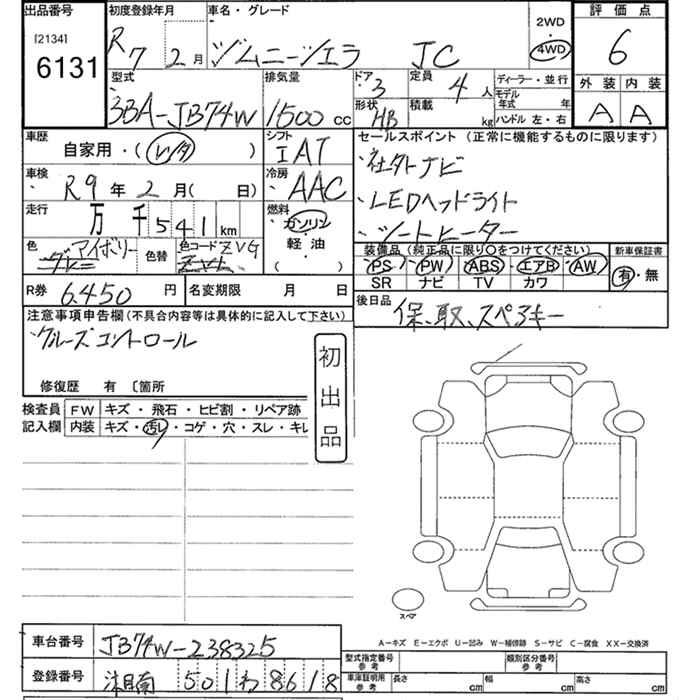 出品番号 初度登録年月 車名・グレード 2WD・4WD 評価点
[2134]
6131 R7 2月 ジムニーシエラ JC 6
型式 排気量 ドア 3 定員 4人 ディーラー・並行 外装 内装
モデル年式 年
3BA-JB74W 1500cc 形状 HB 積載 kg ハンドル 左・右 A A
車歴 シフト セールスポイント (正常に機能するものに限ります)
自家用・(レンタ) IAT 社外ナビ
車検 冷房
R9年2月(日) AAC LEDヘッドライト
走行 燃料
万千541km ガソリン シートヒーター
軽油
( )
色 アイボリー 色替 色コード ZVG 装備品 (純正品に限り○をつけてください) 新車保証書
グレー ZVL PS PW ABS エアB AW 有・無
SR ナビ TV カワ
R券 6.450円 名変期限 月 日 後日品
保、取、スペアキー
注意事項申告欄 (不具合内容等は具体的に記入して下さい)
クルーズコントロール
修復歴 有 〔箇所
初出品
検査員 FW キズ・飛石・ヒビ割・リペア跡
記入欄 内装 キズ・汚レ・コゲ・穴・スレ・キレ
スペア
A-キズ E-エクボ U-凹み W-補修跡 S-サビ C-腐食 XX-交換済
車台番号 JB74W-238325
型式指定番号 参考 類別区分番号 参考
登録番号 湘南 501 わ 8618
車庫証明用 参考 長さ cm 幅 cm 高さ cm